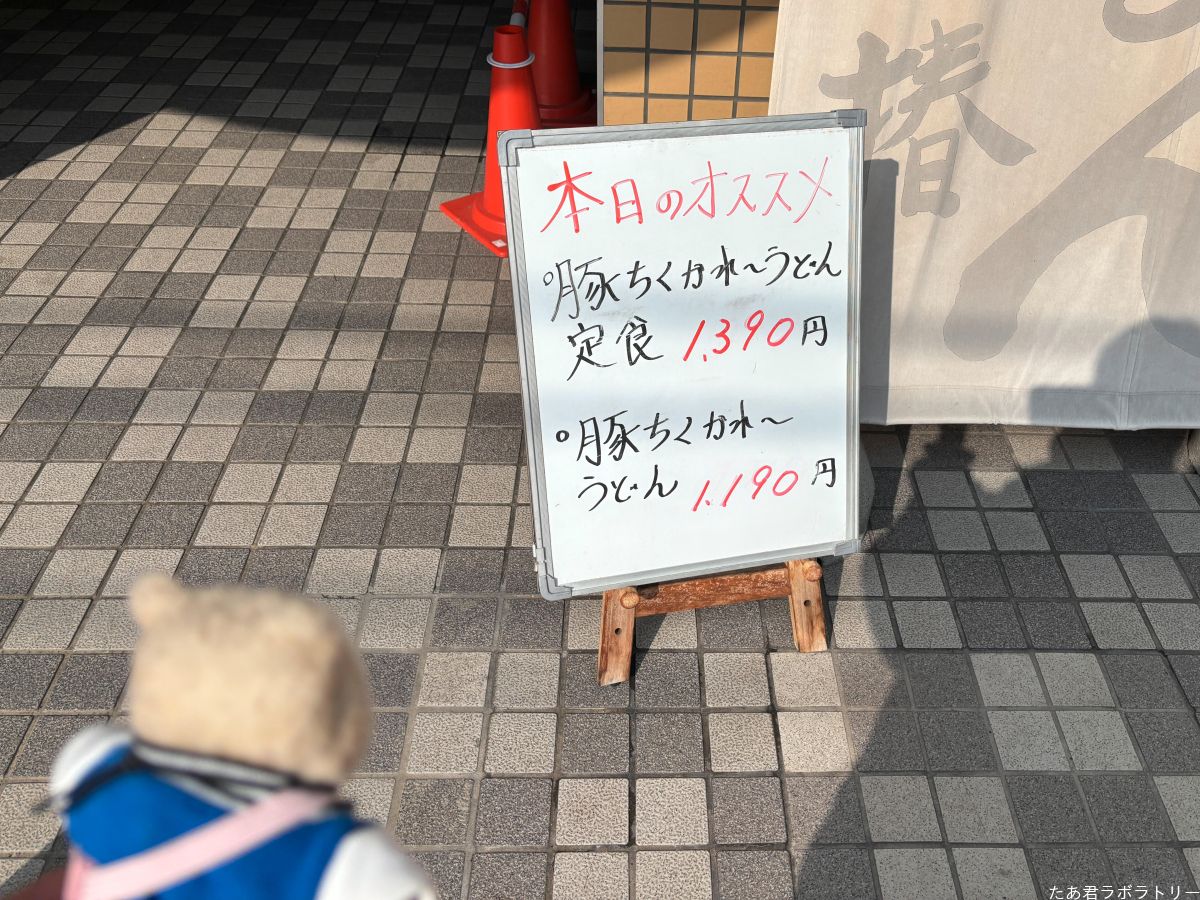 本日のオススメ
豚ちくかれ〜うどん
定食 1.390円
豚ちくかれ〜
うどん 1.190円
椿
たあ君ラボラトリー